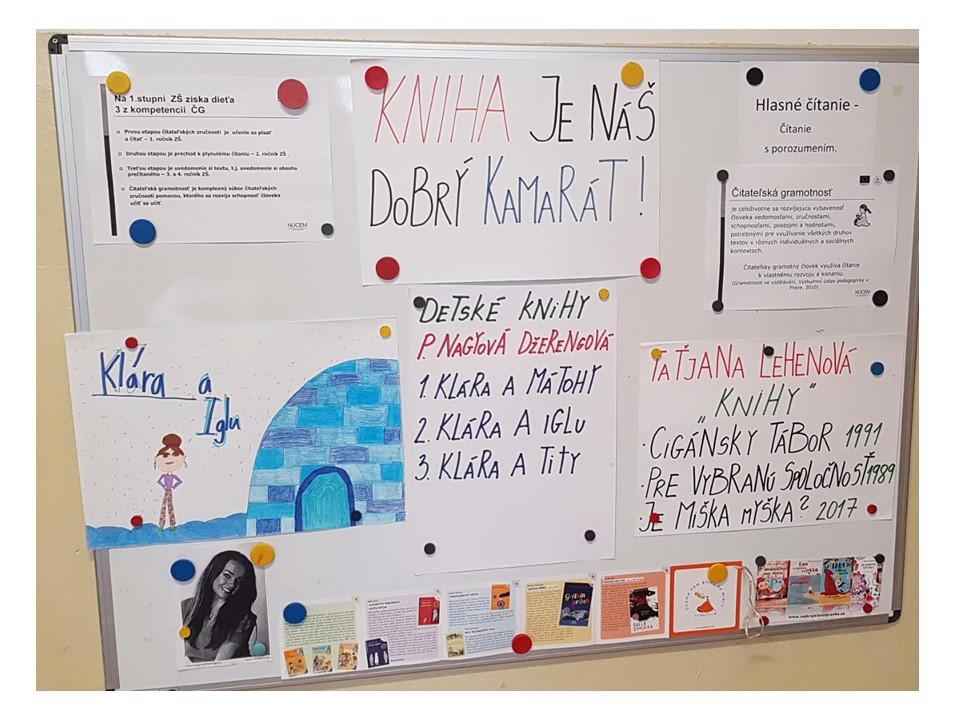 Na 1.stupni ZŠ získa dieťa
3 z kompetencií ČG
Prvou etapou čitateľských zručností je učenie sa písať
a čítať – 1. ročník ZŠ.
Druhou etapou je prechod k plynulému čítaniu – 2. ročník ZŠ .
Treťou etapou je uvedomenie si textu, t.j. uvedomenie si obsahu
prečítaného – 3. a 4. ročník ZŠ.
Čitateľská gramotnosť je komplexný súbor čitateľských
zručností pomocou, ktorého sa rozvíja schopnosť človeka
učiť sa učiť.
NÚCEM
KNIHA JE NÁŠ
DOBRÝ KAMARÁT!
Hlasné čítanie -
Čítanie
s porozumením.
Čitateľská gramotnosť
je celoživotne sa rozvíjajúca vybavenosť
človeka vedomosťami, zručnosťami,
schopnosťami, postojmi a hodnotami,
potrebnými pre využívanie všetkých druhov
textov v rôznych individuálnych a sociálnych
kontextoch.
Čitateľsky gramotný človek využíva čítanie
k vlastnému rozvoju a konaniu.
(Gramotnosti ve vzdělávání, Výzkumný ústav pedagogický v
Praze, 2010)
NÚCEM
Klára a
Iglu
DETSKÉ KNIHY
P. NAGYOVÁ DŽERENGOVÁ
1. KLÁRA A MÁTOHY
2. KLÁRA A IGLU
3. KLÁRA A TITY
TATJANA LEHENOVÁ
„KNIHY“
· CIGÁNSKY TÁBOR 1991
· PRE VYBRANÚ SPOLOČNOSŤ 1989
· JE MIŠKA MYŠKA? 2017
Gréban
príbeh
www.najkrajsiarozpravka.sk